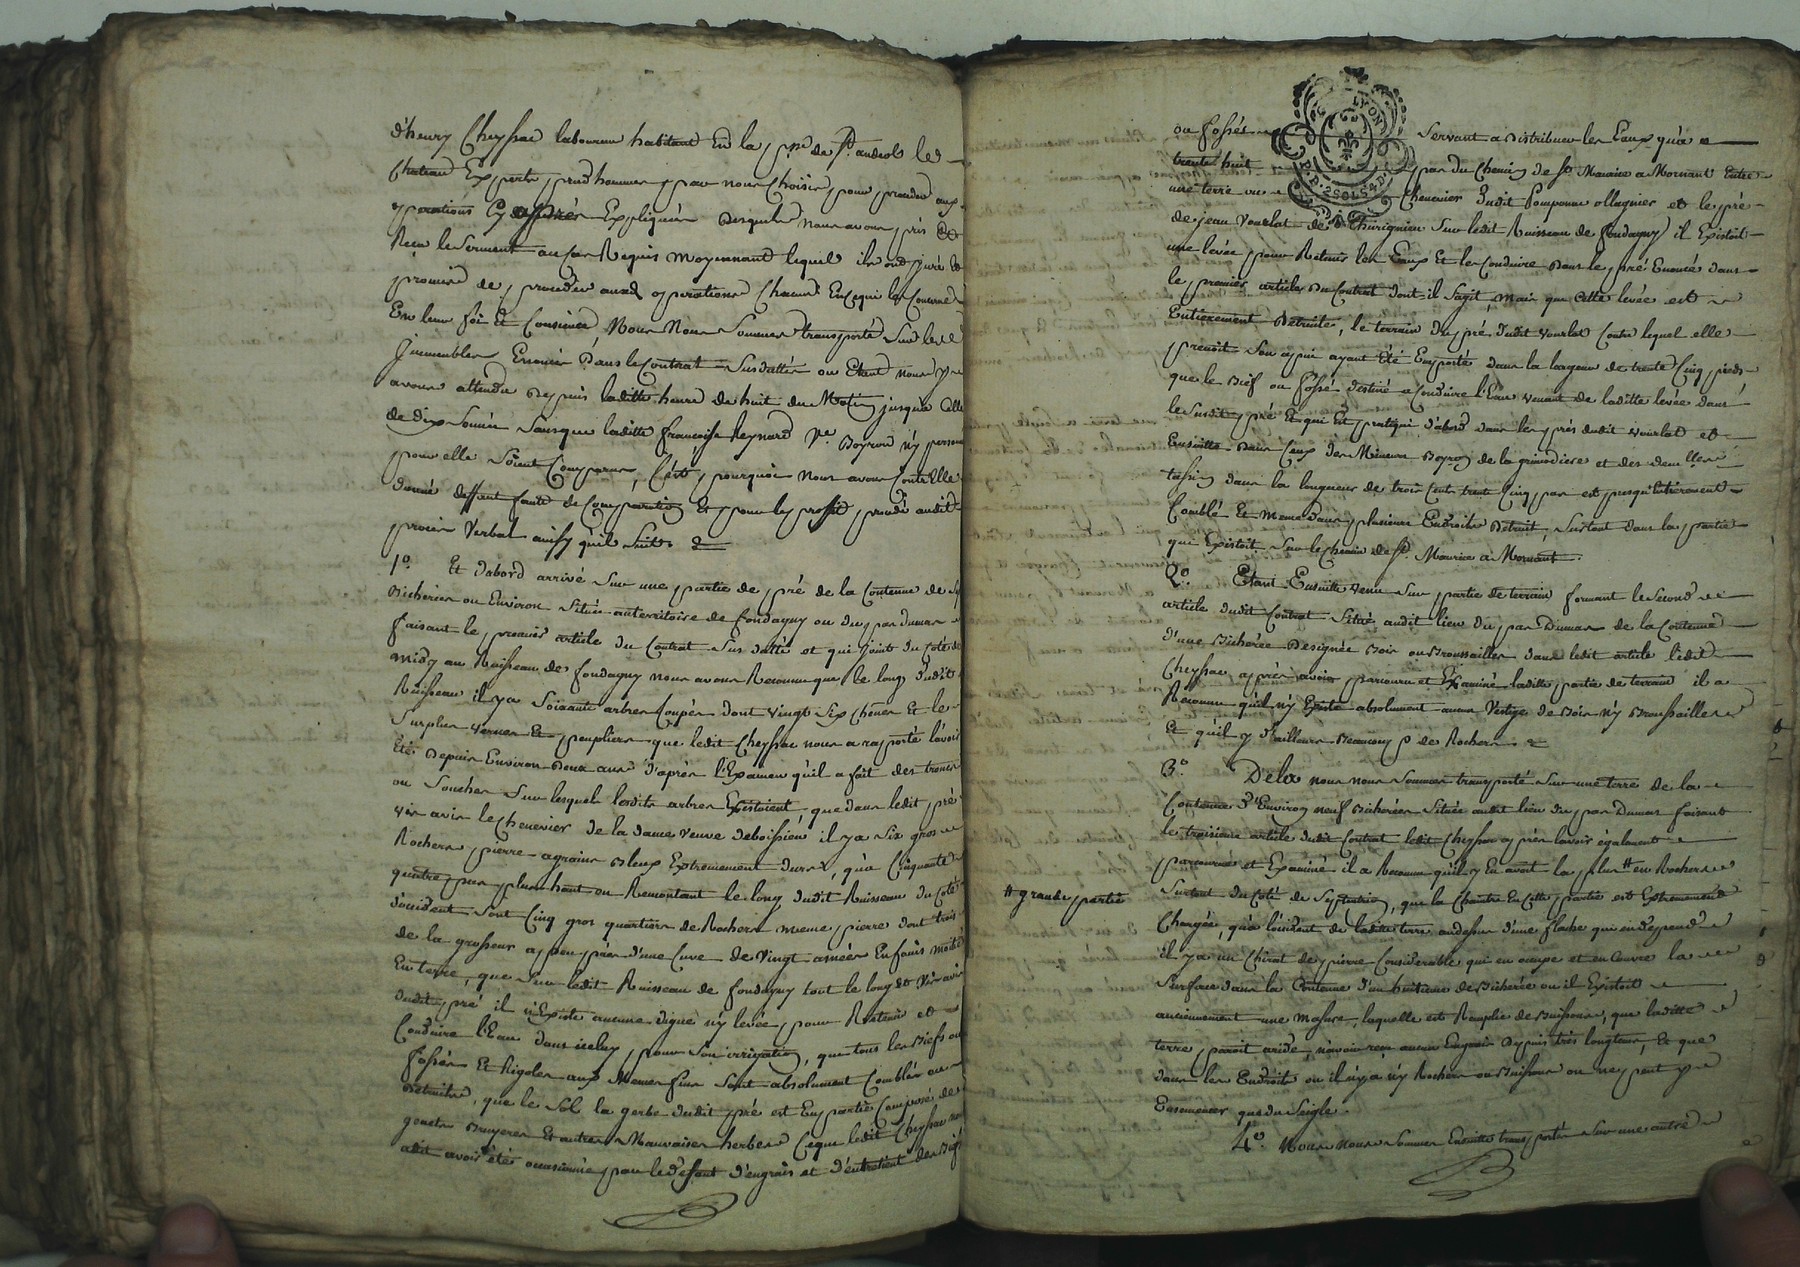 d'henry Cheyssac laboureur habitant En la psse de St andeol le
Chateau Experts prud'hommes par nous Choisis pour proceder aux
operations Cy apprès Expliquées desquels nous avons pris Et
Reçu le Serment au Cas Requis moyennant lequel ils ont juré Et
promis de proceder auxd operations Chacun En ce qui les Concerne
En leur foi Et Consience Nous Nous Sommes transporté Sur les
Immeubles Enoncés dans le Contrat Susdatté ou Etant nous y
avons attendu depuis laditte heure de huit du Matin jusqu'a Celle
de dix Sonnée Sans que laditte francoise Reynard Ve Boyron n'y personne
pour elle Soient Comparus, C'est pourquoi nous avons Contr'Elle
donné deffaut faute de Comparution Et pour le proffit procedé audit
procès Verbal ainsy qu'il Suit
1o. Et d'abord arrivé Sur une partie de pré de la Contenue de
Bicherées ou Environ Située au territoire de fondagny ou du pas Dumas
faisant le premier article du Contrat Sus datté et qui joint du Coté de
midy au Ruisseau de fondagny nous avons Reconnu que le long dudit
Ruisseau il y a Soixante arbres Coupés dont vingt Six Chênes Et le
Surplus vernes Et peupliers que ledit Cheyssac nous a rapporté l'avoir
Été Depuis Environ Deux ans d'après l'Examen qu'il a fait des troncs
ou Souches Sur lesquels lesdits arbres Existoient, que dans ledit pré
vis avis le Chenevier de la dame veuve deboissieu il y a Six gros
Rochers pierre agrains Bleux Extremement durs, qu'a Cinquante
quatre pas plus haut En Remontant le long dudit Ruisseau du Coté
d'occident Sont Cinq gros quartiers de Rochers meme pierre dont trois
de la grosseur a peu près d'une Cuve de Vingt anées Enfouis moitié
En terre, que Sur ledit Ruisseau de fondagny tout le long Et vis avis
dudit pré il n'Existe aucune digue n'y levée pour Retenir et
Conduire l'Eau dans icelluy pour Son irrigation, que tous les Biefs ou
fossés Et Rigoles aux Memes fins Sont absolument Comblés ou
Detruits, que le Sol la gerbe dudit pré est En partie Composé de
genets Bruyeres Et autres Mauvaises herbes Ceque ledit Cheyssac nous
adit avoir été occasionné par le deffaut d'engrais et d'entretient des Biefs
ou fossés Servant a Distribuer les Eaux qu'a
trente huit pas du Chemin de St Maurice a Mornant Entre
une terre ou Chenevier dudit Pomponne ollagnier et le pré
de jean vourlat de Thurigneu Sur ledit Ruisseau de fondagny il Existoit
une levée pour Retenir les Eaux Et les Conduire Dans le pré Enoncé dans
le premier article du Contrat dont il S'agit, mais que Cette levée est
Entierement Detruite, le terrain du pré dudit vourlat Contre lequel elle
prenoit Son apui ayant Eté Emporté dans la largeur de trente Cinq pieds
que le Bief ou fossé destiné a Conduire l'Eau venant de laditte levée dans
le Susdit pré Et qui Est pratiqué d'abord dans les prés dudit vourlat et
Ensuitte dans Ceux des Mineurs Boyron de la grimodiere et des demlles
tassin dans la longueur de trois Cents trente Cinq pas est presqu'Entierement
Comblé Et Meme dans plusieurs Endroits Detruit, Surtout dans la partie
qui Existoit Sur le Chemin de St. Maurice a Mornant.
2o. Etant Ensuitte venu Sur partie de terrain formant le Second
article dudit Contrat Situé audit lieu du pas Dumas de la Contenue
d'une Bicherée Designée Bois ou Broussailles dans ledit article ledit
Cheyssac après avoir parcouru et Examiné laditte partie de terrain il a
Reconnu qu'il n'y Existe absolument aucun Vestige de Bois n'y Broussailles
Et qu'il y d'ailleurs Beaucoup de Rochers
3o. Dela nous nous Sommes transporté Sur une terre de la
Contenue d'Environ neuf Bicherées Située audit lieu du pas Dumas faisant
le troisième article dudit Contrat ledit Cheyssac après l'avoir également
parcourue et Examiné il a Reconnu qu'il y En avoit la plus # en Rochers
# grande partie
Surtout du Coté de Septentrion, que la Chaintre En Cette partie est Extremement
Chargée, qu'a l'occident de laditte terre audessus d'une flache qui en depend
il y a un Chirat de pierre Considerable qui en occupe et en Couvre la
Surface dans la Contenue d'un huitieme de Bicherée ou il Existoit
anciennement une Masure, laquelle est Remplie de Buissons, que laditte
terre paroit aride, n'avoir reçu aucun Engrais Depuis très longtems, Et que
dans les Endroits ou il n'y a n'y Rochers ou Buissons on ne peut y
Ensemencer que du Seigle.
4o. Nous nous Sommes Ensuitte transporté Sur une autre
LYON
2 SOLS 4 D